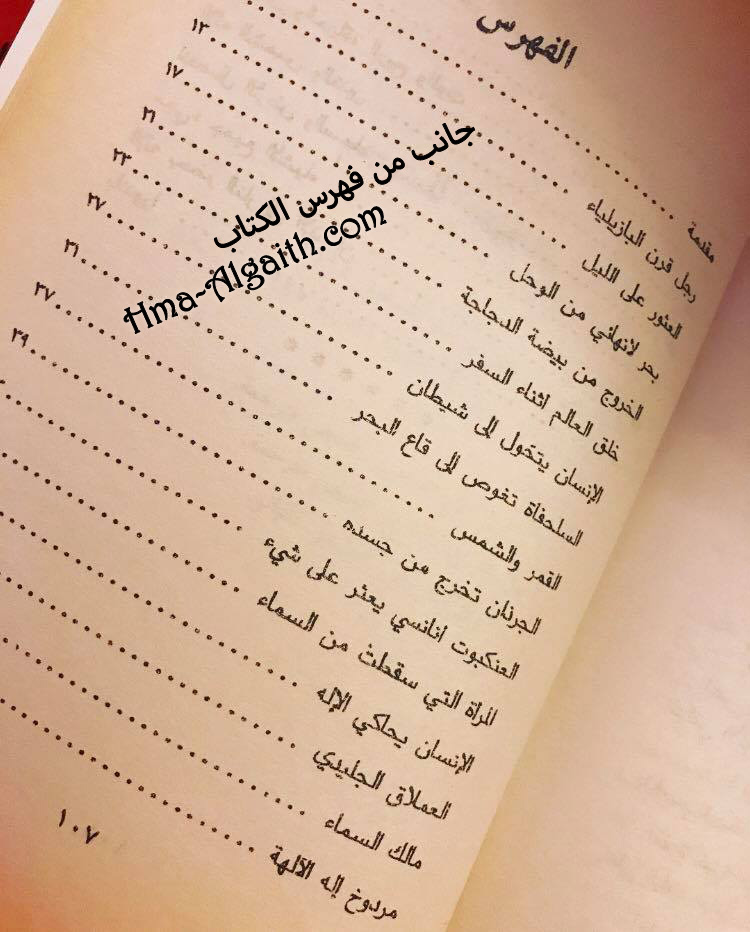 الفهرس
مقدمة
رجل قرن البازيلياء ١٣
العثور على الليل ١٧
بحر لانهائي من الوحل ٢١
الخروج من بيضة الدجاجة ٢٣
خلق العالم اثناء السفر ٢٧
الإنسان يتحول إلى شيطان ٣١
السلحفاة تغوص إلى قاع البحر ٣٧
القمر والشمس ٣٩
الجرذان تخرج من جسده
العنكبوت أنانسي يعثر على شيء
المرأة التي سقطت من السماء
الإنسان يحاكي الإله
العملاق الجليدي
مالك السماء
مردوخ إله الآلهة
١٠٧
جانب من فهرس الكتاب
Hma-Algaith.com